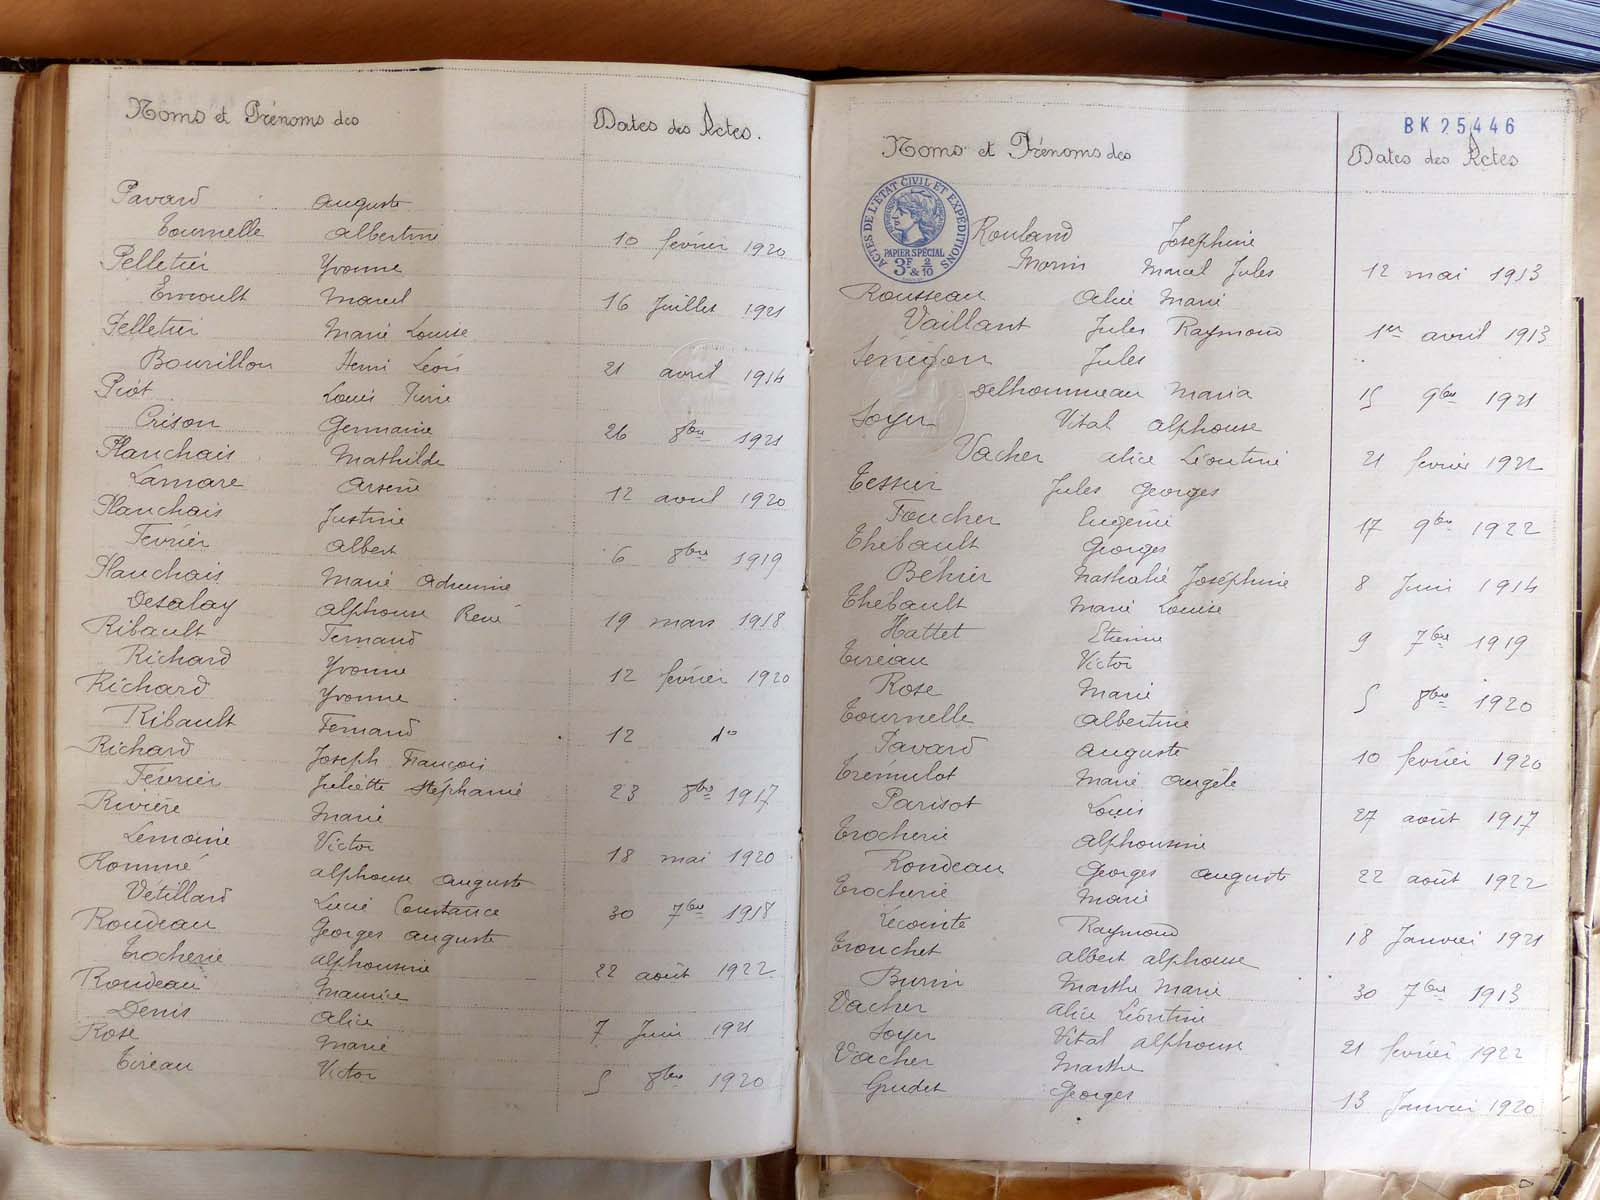 Noms et Prénoms des Dates des Actes.
Pavard Auguste
Tournelle Albertine 10 février 1920
Pelletier Yvonne
Ernoult Marcel 16 Juillet 1921
Pelletier Marie Louise
Bourillon Henri Léon 21 avril 1914
Piot Louis Pierre
Crison Germaine 26 8bre 1921
Planchais Mathilde
Lamare Arsène 12 avril 1920
Planchais Justine
Février Albert 6 8bre 1919
Planchais Marie Adrienne
Desalay Alphonse René 19 mars 1918
Ribault Fernand
Richard Yvonne 12 février 1920
Richard Yvonne
Ribault Fernand 12 do
Richard Joseph François
Février Juliette Stéphanie 23 8bre 1917
Rivière Marie
Lemoine Victor 18 mai 1920
Rommé Alphonse Auguste
Vétillard Lucie Constance 30 7bre 1918
Rondeau Georges Auguste
Trocherie Alphonsine 22 août 1922
Rondeau Maurice
Denis Alice 7 Juin 1921
Rose Marie
Tireau Victor 5 8bre 1920
BK 25446
Noms et Prénoms des Dates des Actes
ACTES DE L'ÉTAT CIVIL ET EXPÉDITIONS
PAPIER SPÉCIAL
3F & 2/10
Rouland Joséphine
Morin Marcel Jules 12 mai 1913
Rousseau Alice Marie
Vaillant Jules Raymond 1er avril 1913
Jules
Delhommeau Maria 15 9bre 1921
Soyer Vital Alphonse
Vacher Alice Léontine 21 février 1922
Tessier Jules Georges
Foucher Eugénie 17 9bre 1922
Thébault Georges
Béhier Nathalie Joséphine 8 Juin 1914
Thébault Marie Louise
Hattet Etienne 9 7bre 1919
Tireau Victor
Rose Marie 5 8bre 1920
Tournelle Albertine
Pavard Auguste 10 février 1920
Trémulot Marie Angèle
Parisot Louis 27 août 1917
Trocherie Alphonsine
Rondeau Georges Auguste 22 août 1922
Trocherie Marie
Lecointe Raymond 18 Janvier 1921
Trouchet Albert Alphonse
Burin Marthe Marie 30 7bre 1913
Vacher Alice Léontine
Soyer Vital Alphonse 21 février 1922
Vacher Marthe
Grudet Georges 13 Janvier 1920